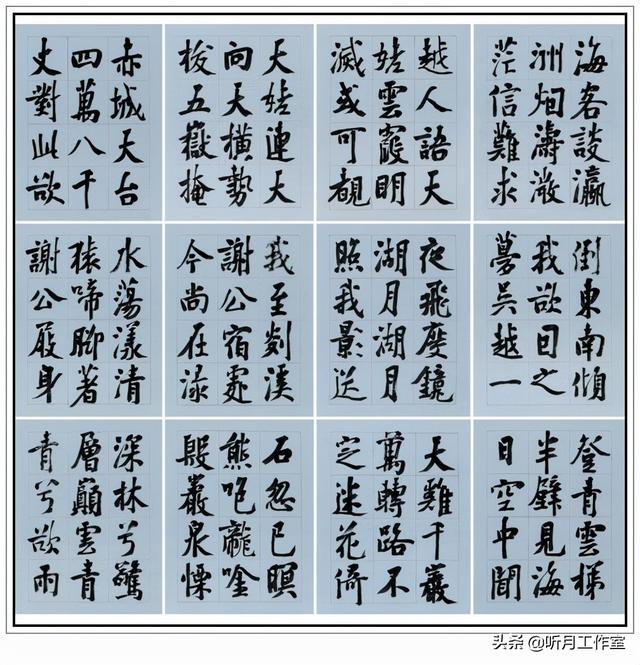 海客談瀛
洲烟濤微
茫信難求
越人語天
姥雲霞明
滅或可覩
天姥連天
向天橫勢
拔五嶽掩
赤城天台
四萬八千
丈對此欲
倒東南傾
我欲因之
夢吳越一
夜飛度鏡
湖月湖月
照我影送
我至剡溪
謝公宿處
今尚在淥
水蕩漾清
猿啼腳著
謝公屐身
登青雲梯
半壁見海
日空中聞
天雞千巖
萬轉路不
定迷花倚
石忽已暝
熊咆龍吟
殷巖泉慄
深林兮驚
層巔雲青
青兮欲雨
头条 @听月工作室